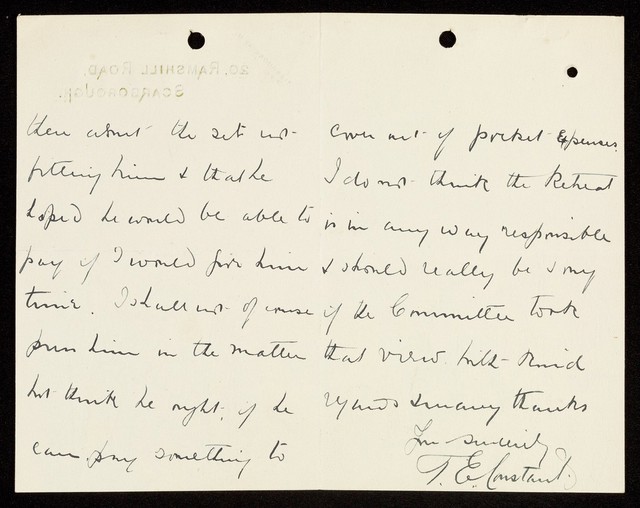 then about the set not
fitting him & that he
hoped he would be able to
pay if I would give him
time. I shall not of course
press him in the matter
but think he ought, if he
can, pay something to
cover out of pocket expenses.
I do not think the Retreat
is in any way responsible
& should really be sorry
if the Committee took
that view. With kind
regards & many thanks
Yours sincerely
T. E. Constant.
20, RAMSHILL ROAD,
SCARBOROUGH.